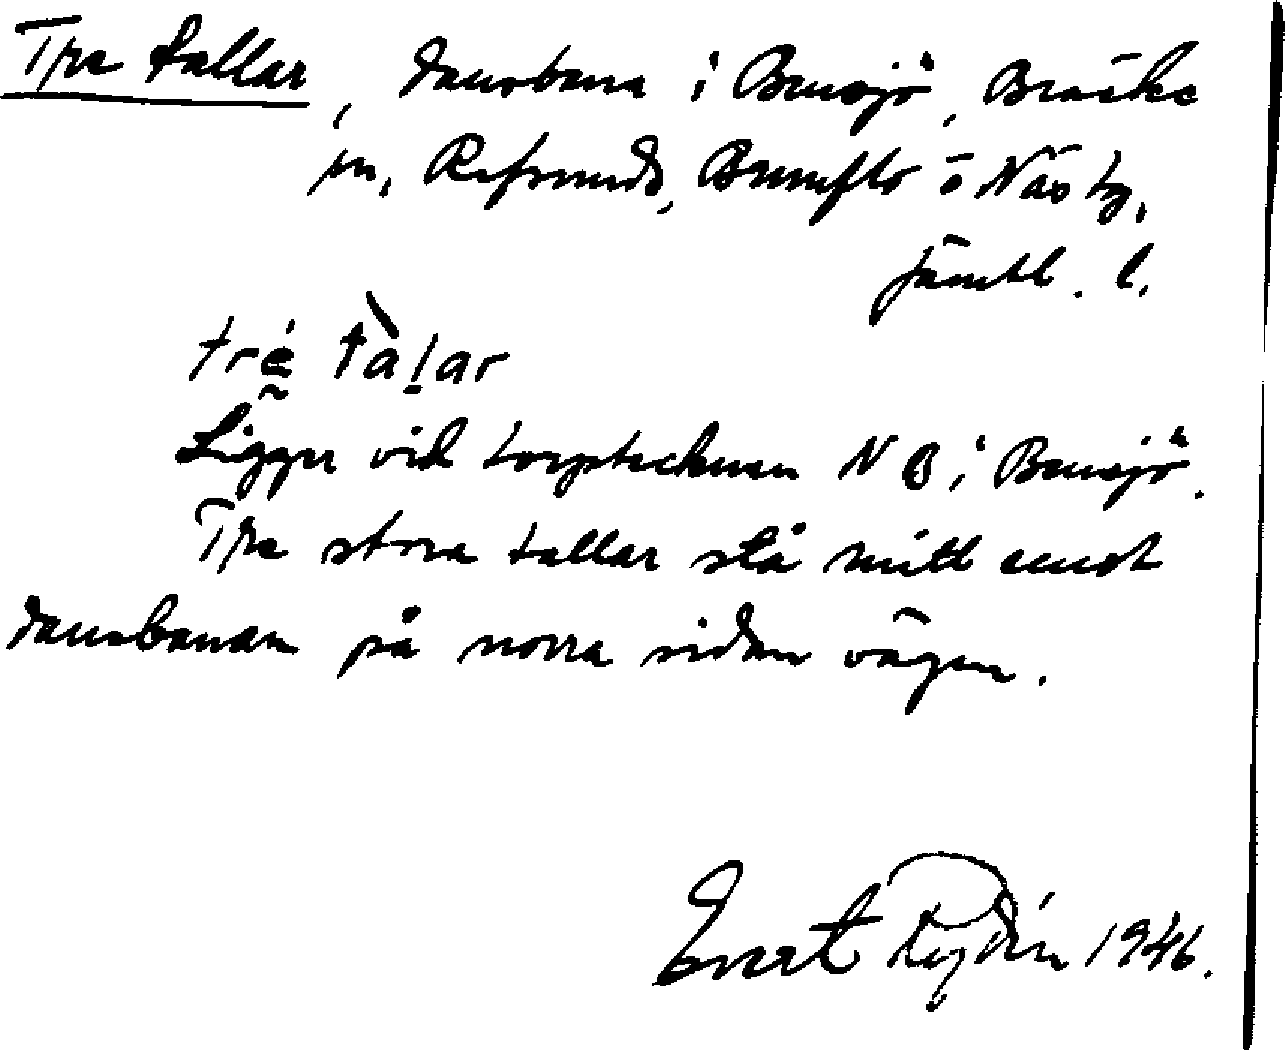 Tre tallar, dansbana i Bensjö, Bräcke
sn, Refsunds, Brunflo o Näs tg,
Jämtl. l.
tré tàlar
Ligger vid torptecknen N B i Bensjö.
Tre stora tallar stå mitt emot
dansbanan på norra sidan vägen.
Evert Rydén 1946.